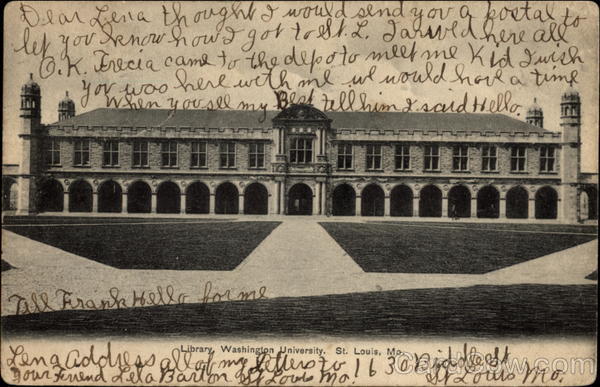 Dear Lena thought I would send you a postal to
let you know how I got to St. L. I arived here all
O.K. Frecia came to the depo to meet me Kid I wish
you was here with me we would have a time
When you see my Best tell him I said Hello
Tell Frank Hello for me
Library, Washington University. St. Louis, Mo.
Lena Address all of my letters to 1630 Biddle St
Your Friend Lela Barton St Louis Mo. St Louis Mo.
CardCow.com